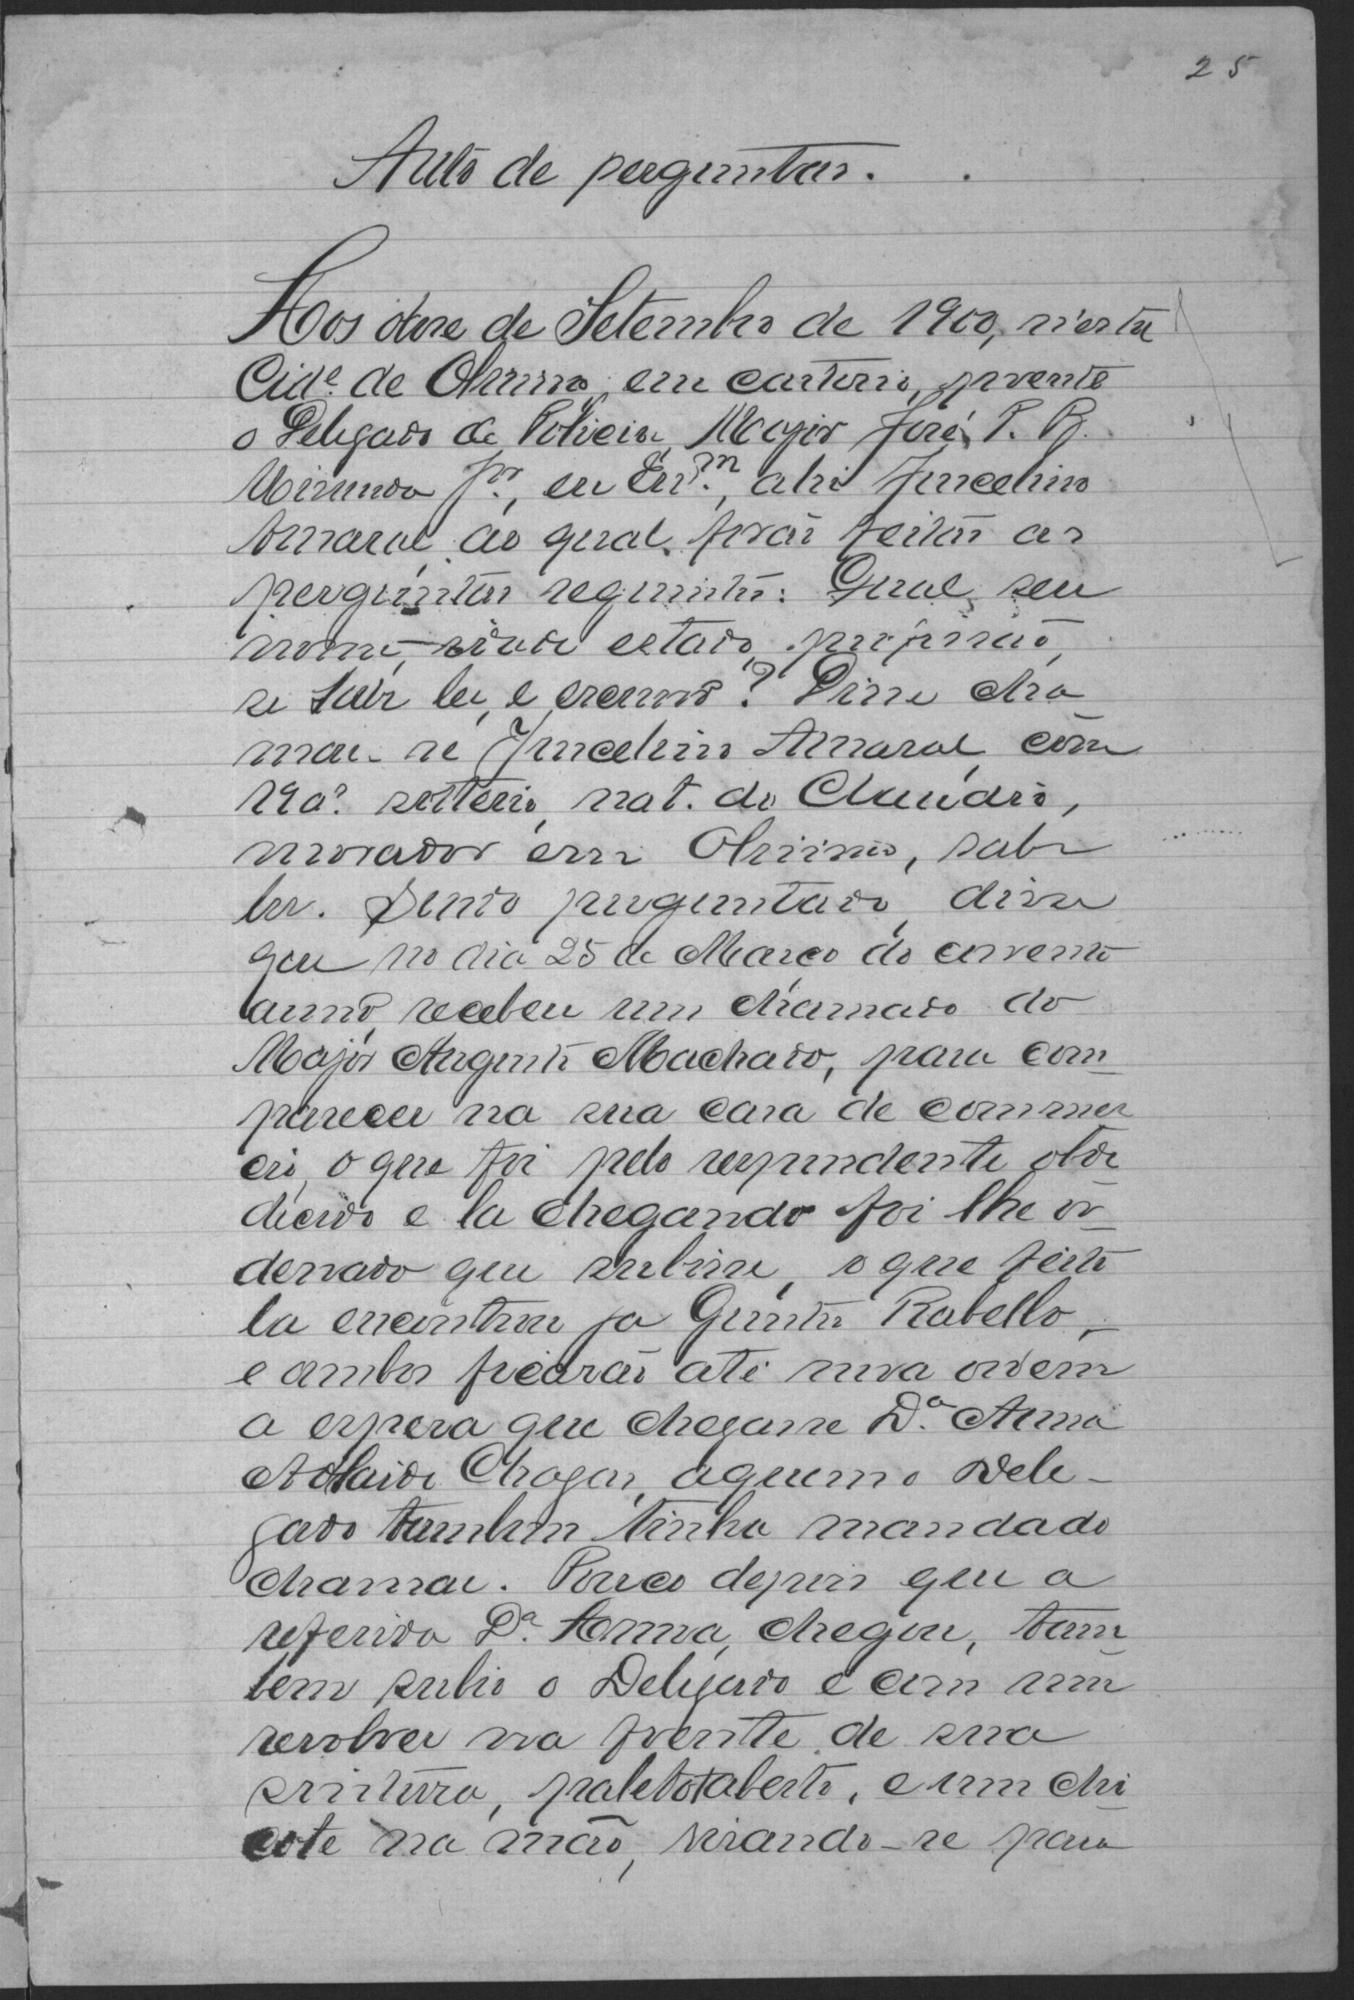 25
Auto de perguntas.
Aos dose de Setembro de 1900, n'esta
Cid.e de Oliveira, em cartorio, presente
o Delegado de Policia Major José P. R.
Miranda Jor., eu Escr.m, ahi Juscelino
Amaral, ao qual forão feitas as
perguntas seguintes: Qual seu
nome, idade estado, profissão,
se sabe ler, e escrever? Disse cha
mar-se Juscelino Amaral, com
19 a.s solteiro, nat. do Claudio,
morador em Oliveira, sabe
ler. Sendo perguntado, disse
que no dia 25 de Março do corrente
anno, recebeu um chamado do
Major Augusto Machado, para com
parecer na sua casa de commer
cio, o que foi pelo respondente obe
decido e la chegando foi lhe or
denado que subisse, o que feito
la encontrou ja Quintu Rabello,
e ambos ficarão ate nova ordem
a espera que chegasse D.a Anna
Adelaide Chagas, aquem o Dele-
gado tambem tinha mandado
chamar. Pouco depois que a
referida D.a Anna, chegou, tam
bem subio o Delegado e com um
revolver na frente de sua
sintura, paletot aberto, e um chi
cote na mão, virando-se para